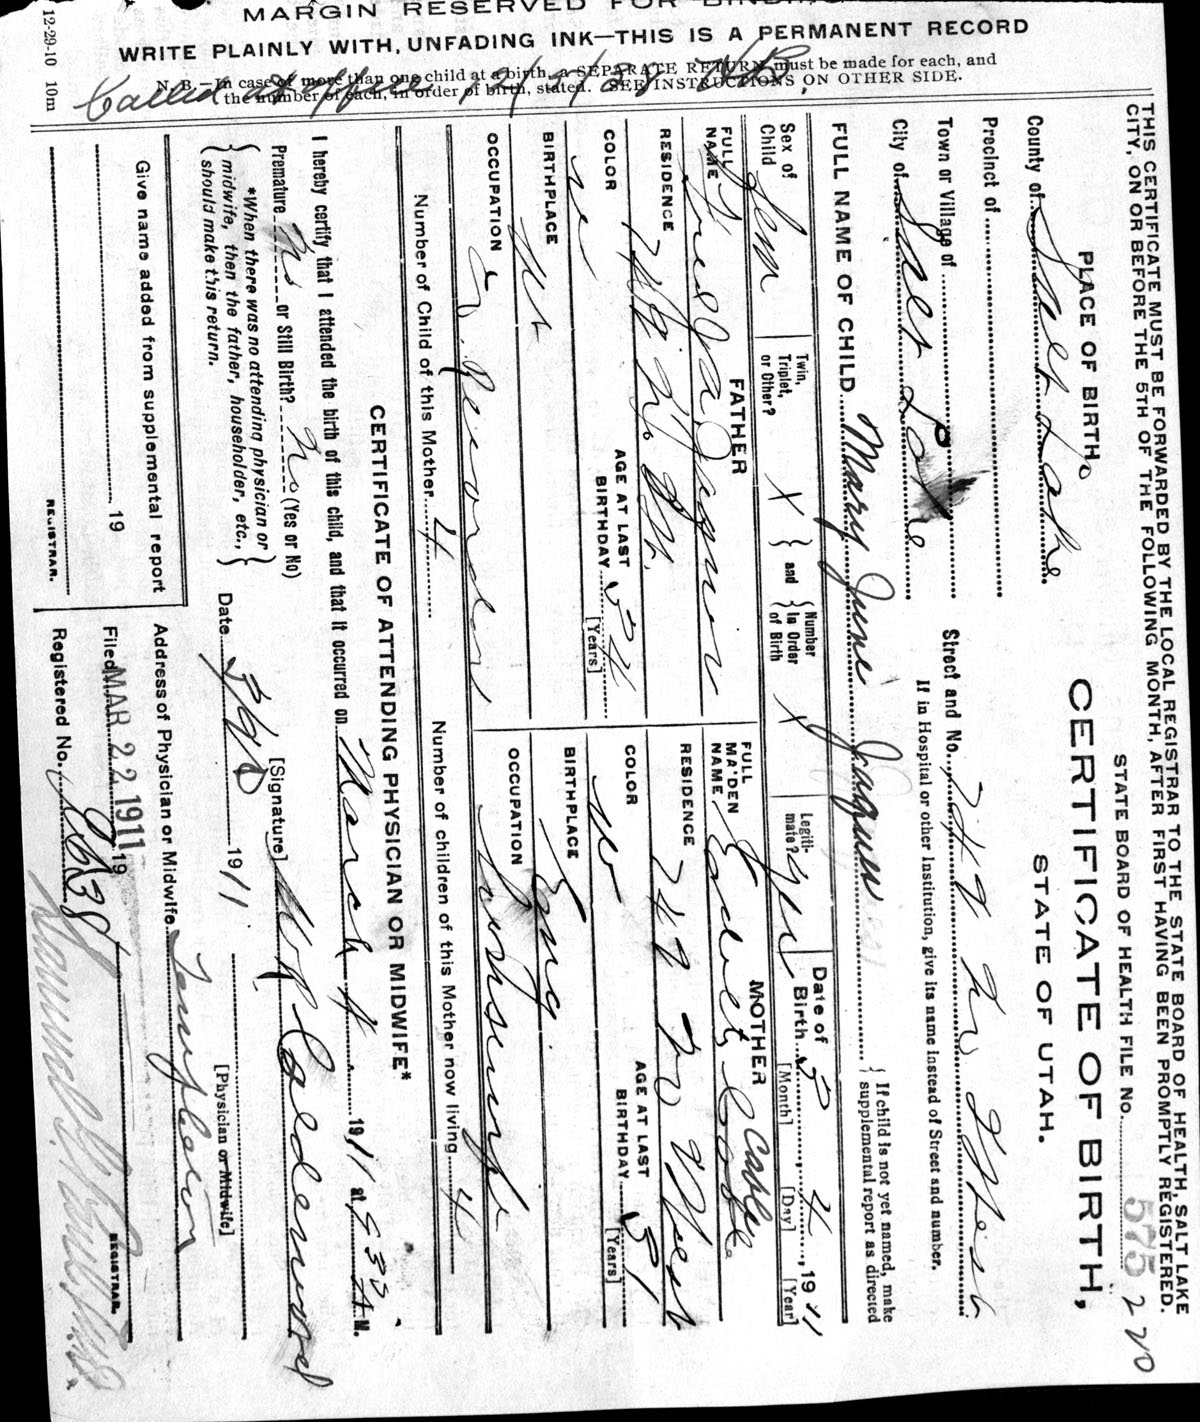 MARGIN RESERVED FOR
WRITE PLAINLY WITH, UNFADING INK—THIS IS A PERMANENT RECORD
N. B.—In case of more than one child at a birth, a SEPARATE RETURN must be made for each, and
the number of each, in order of birth, stated. SEE INSTRUCTIONS ON OTHER SIDE.
Called at office
12-29-10 10m
THIS CERTIFICATE MUST BE FORWARDED BY THE LOCAL REGISTRAR TO THE STATE BOARD OF HEALTH, SALT LAKE
CITY, ON OR BEFORE THE 5TH OF THE FOLLOWING MONTH, AFTER FIRST HAVING BEEN PROMPTLY REGISTERED.
STATE BOARD OF HEALTH FILE NO. 575 220
PLACE OF BIRTH
CERTIFICATE OF BIRTH,
STATE OF UTAH.
County of Salt Lake
Precinct of
Town or Village of
Street and No. 749 No 8 West
City of Salt Lake
If in Hospital or other Institution, give its name instead of Street and number.
FULL NAME OF CHILD Mary June
{ If child is not yet named, make
supplemental report as directed
Sex of Child Fem
Twin, Triplet, or Other? X } and { Number In Order of Birth X
Legitimate? Yes
Date of Birth 3 [Month] 4 [Day], 1911 [Year]
FATHER
FULL NAME Fred
RESIDENCE 749 No 8 W.
COLOR W
AGE AT LAST BIRTHDAY 34 [Years]
BIRTHPLACE
OCCUPATION
MOTHER
FULL MAIDEN NAME Edith Cable
RESIDENCE 749 No 8 West
COLOR W
AGE AT LAST BIRTHDAY 31 [Years]
BIRTHPLACE Eng
OCCUPATION Housewife
Number of Child of this Mother 4
Number of children of this Mother now living 4
CERTIFICATE OF ATTENDING PHYSICIAN OR MIDWIFE*
I hereby certify that I attended the birth of this child, and that it occurred on March 4 1911 at 9 30 A M.
Premature No or Still Birth? No (Yes or No)
[Signature]
{ *When there was no attending physician or
midwife, then the father, householder, etc.,
should make this return. }
Date 3/20 1911
[Physician or Midwife]
Give name added from supplemental report
19
REGISTRAR.
Address of Physician or Midwife Templeton
Filed MAR 22 1911 19
Registered No.
REGISTRAR.